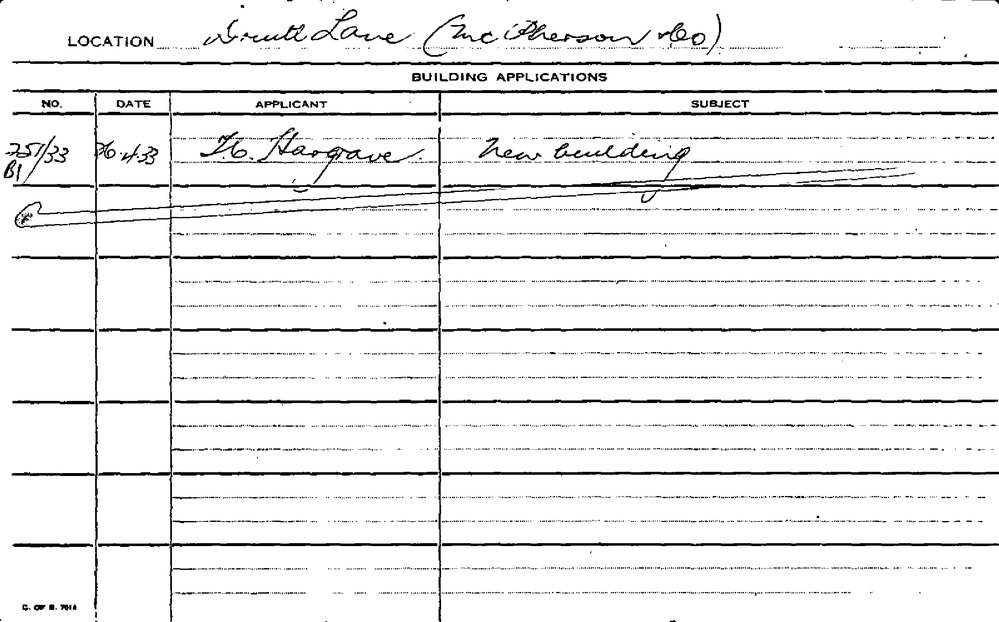 LOCATION Druitt Lane (McPherson & Co)
BUILDING APPLICATIONS
NO. DATE APPLICANT SUBJECT
251/33 26.4.33 H. Hargrave. New building
B1